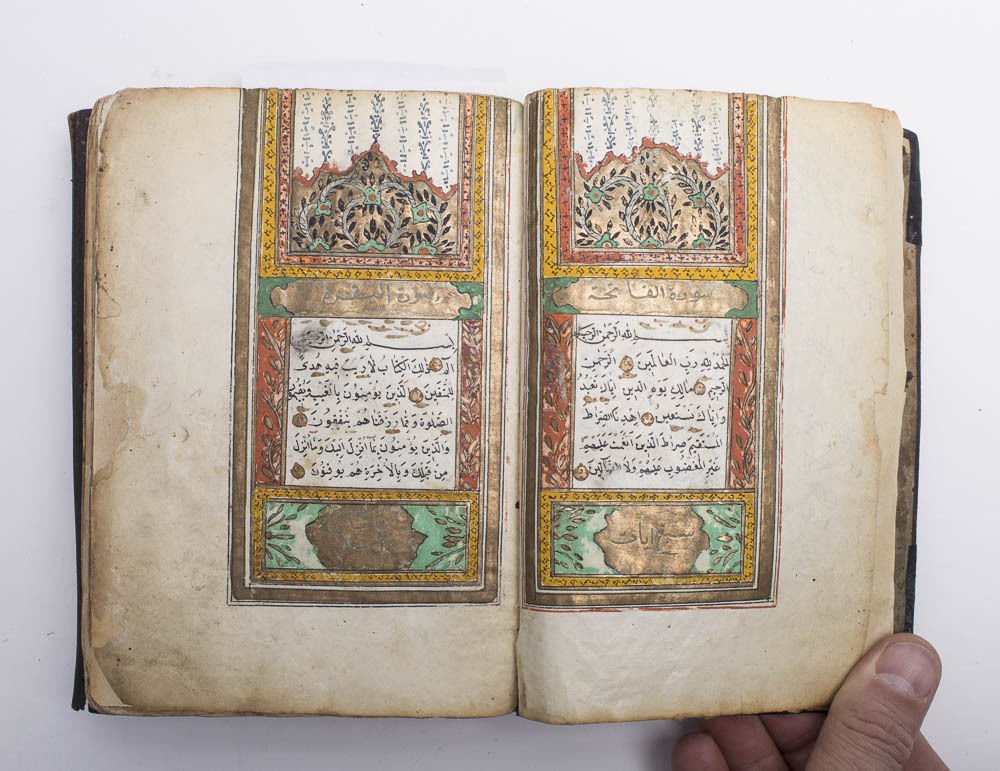 سورة الفاتحة
بسم الله الرحمن الرحيم
الحمد لله رب العالمين الرحمن
الرحيم مالك يوم الدين اياك نعبد
واياك نستعين اهدنا الصراط
المستقيم صراط الذين انعمت عليهم
غير المغضوب عليهم ولا الضالين
سبع ايات
سورة البقرة
بسم الله الرحمن الرحيم
الم ذلك الكتاب لا ريب فيه هدى
للمتقين الذين يؤمنون بالغيب ويقيمون
الصلوة ومما رزقناهم ينفقون
والذين يؤمنون بما انزل اليك وما انزل
من قبلك وبالاخرة هم يوقنون